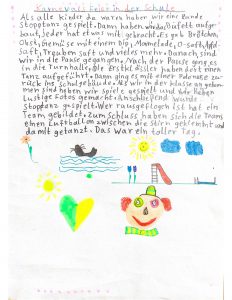 Karneval Feier in der Schule
Als alle kinder da waren haben wir eine Runde
Stopptanz gespielt. Dann haben wir das Büfett aufge-
baut, jeder hat etwas mit gebracht. Es gab Brötchen,
Obst, Gemüse mit einem Dip, Marmelade, O-saft, Apfel-
saft, Trauben saft und viels mehr. Danach sind
wir in die Pause gegangen. Nach der Pause ging es
in die Turnhalle, die Erstkl ässler haben dort einen
Tanz aufgeführt. Dann ging es mit einer Polonäse zu-
rück ins Schulgebäude. Als wir in der klasse an gekom-
men sind haben wir spiele gespielt und wir haben
Lustige Fotos gemacht. Anschließend wurde
Stopdanz gespielt. Wer rausgeflogen ist hat ein
Team gebildet. Zum Schluss haben sich die Teams
einen Luftballon zwischen die Stirn geklemmt und
damit getanzt. Das war ein toller Tag.